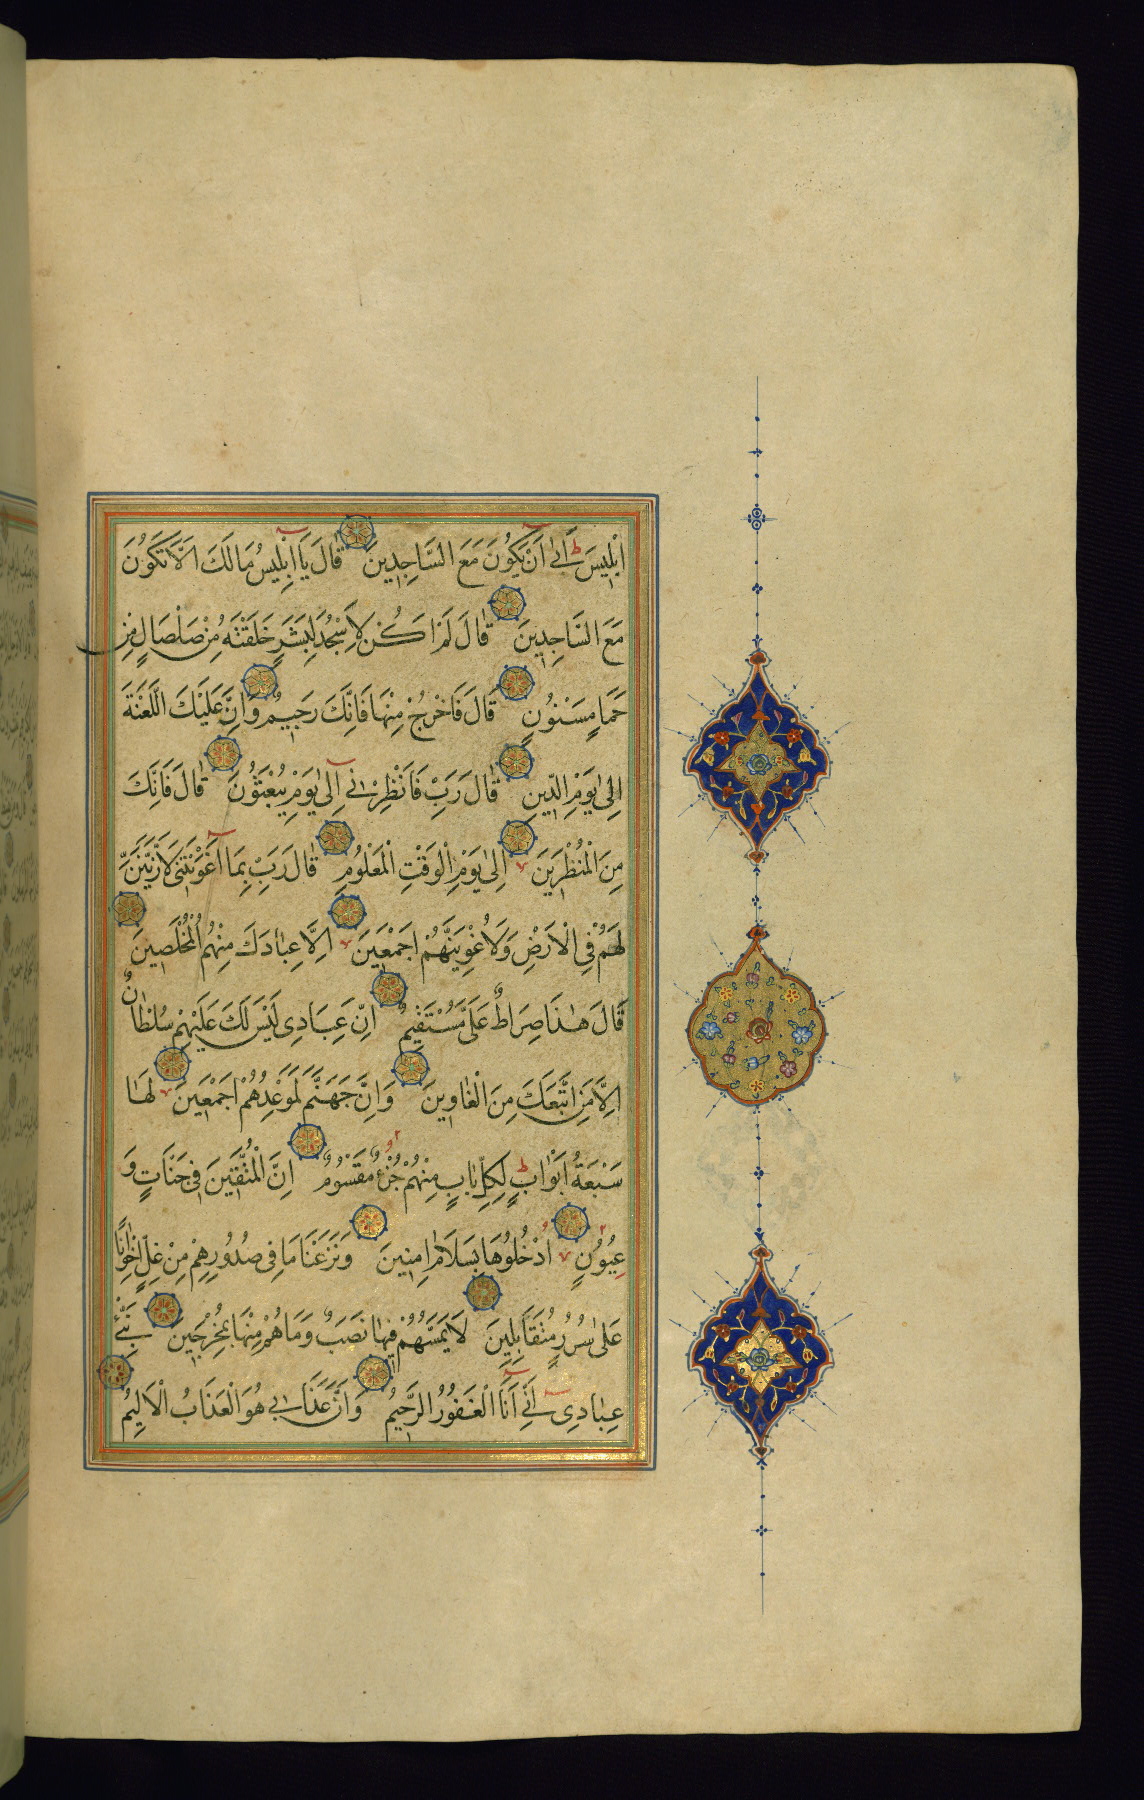 اِبْلِيسَ اَبٰى اَنْ يَكُونَ مَعَ السَّاجِدِينَ قَالَ يَا اِبْلِيسُ مَا لَكَ اَلَّا تَكُونَ
مَعَ السَّاجِدِينَ قَالَ لَمْ اَكُنْ لِاَسْجُدَ لِبَشَرٍ خَلَقْتَهُ مِنْ صَلْصَالٍ مِنْ
حَمَاٍ مَسْنُونٍ قَالَ فَاخْرُجْ مِنْهَا فَاِنَّكَ رَجِيمٌ وَاِنَّ عَلَيْكَ اللَّعْنَةَ
اِلٰى يَوْمِ الدِّينِ قَالَ رَبِّ فَاَنْظِرْنِي اِلٰى يَوْمِ يُبْعَثُونَ قَالَ فَاِنَّكَ
مِنَ الْمُنْظَرِينَ اِلٰى يَوْمِ الْوَقْتِ الْمَعْلُومِ قَالَ رَبِّ بِمَا اَغْوَيْتَنِي لَاُزَيِّنَنَّ
لَهُمْ فِي الْاَرْضِ وَلَاُغْوِيَنَّهُمْ اَجْمَعِينَ اِلَّا عِبَادَكَ مِنْهُمُ الْمُخْلَصِينَ
قَالَ هٰذَا صِرَاطٌ عَلَيَّ مُسْتَقِيمٌ اِنَّ عِبَادِي لَيْسَ لَكَ عَلَيْهِمْ سُلْطَانٌ
اِلَّا مَنِ اتَّبَعَكَ مِنَ الْغَاوِينَ وَاِنَّ جَهَنَّمَ لَمَوْعِدُهُمْ اَجْمَعِينَ لَهَا
سَبْعَةُ اَبْوَابٍ لِكُلِّ بَابٍ مِنْهُمْ جُزْءٌ مَقْسُومٌ اِنَّ الْمُتَّقِينَ فِي جَنَّاتٍ وَ
عُيُونٍ اُدْخُلُوهَا بِسَلَامٍ اٰمِنِينَ وَنَزَعْنَا مَا فِي صُدُورِهِمْ مِنْ غِلٍّ اِخْوَانًا
عَلٰى سُرُرٍ مُتَقَابِلِينَ لَا يَمَسُّهُمْ فِيهَا نَصَبٌ وَمَا هُمْ مِنْهَا بِمُخْرَجِينَ نَبِّئْ
عِبَادِي اَنِّي اَنَا الْغَفُورُ الرَّحِيمُ وَاَنَّ عَذَابِي هُوَ الْعَذَابُ الْاَلِيمُ